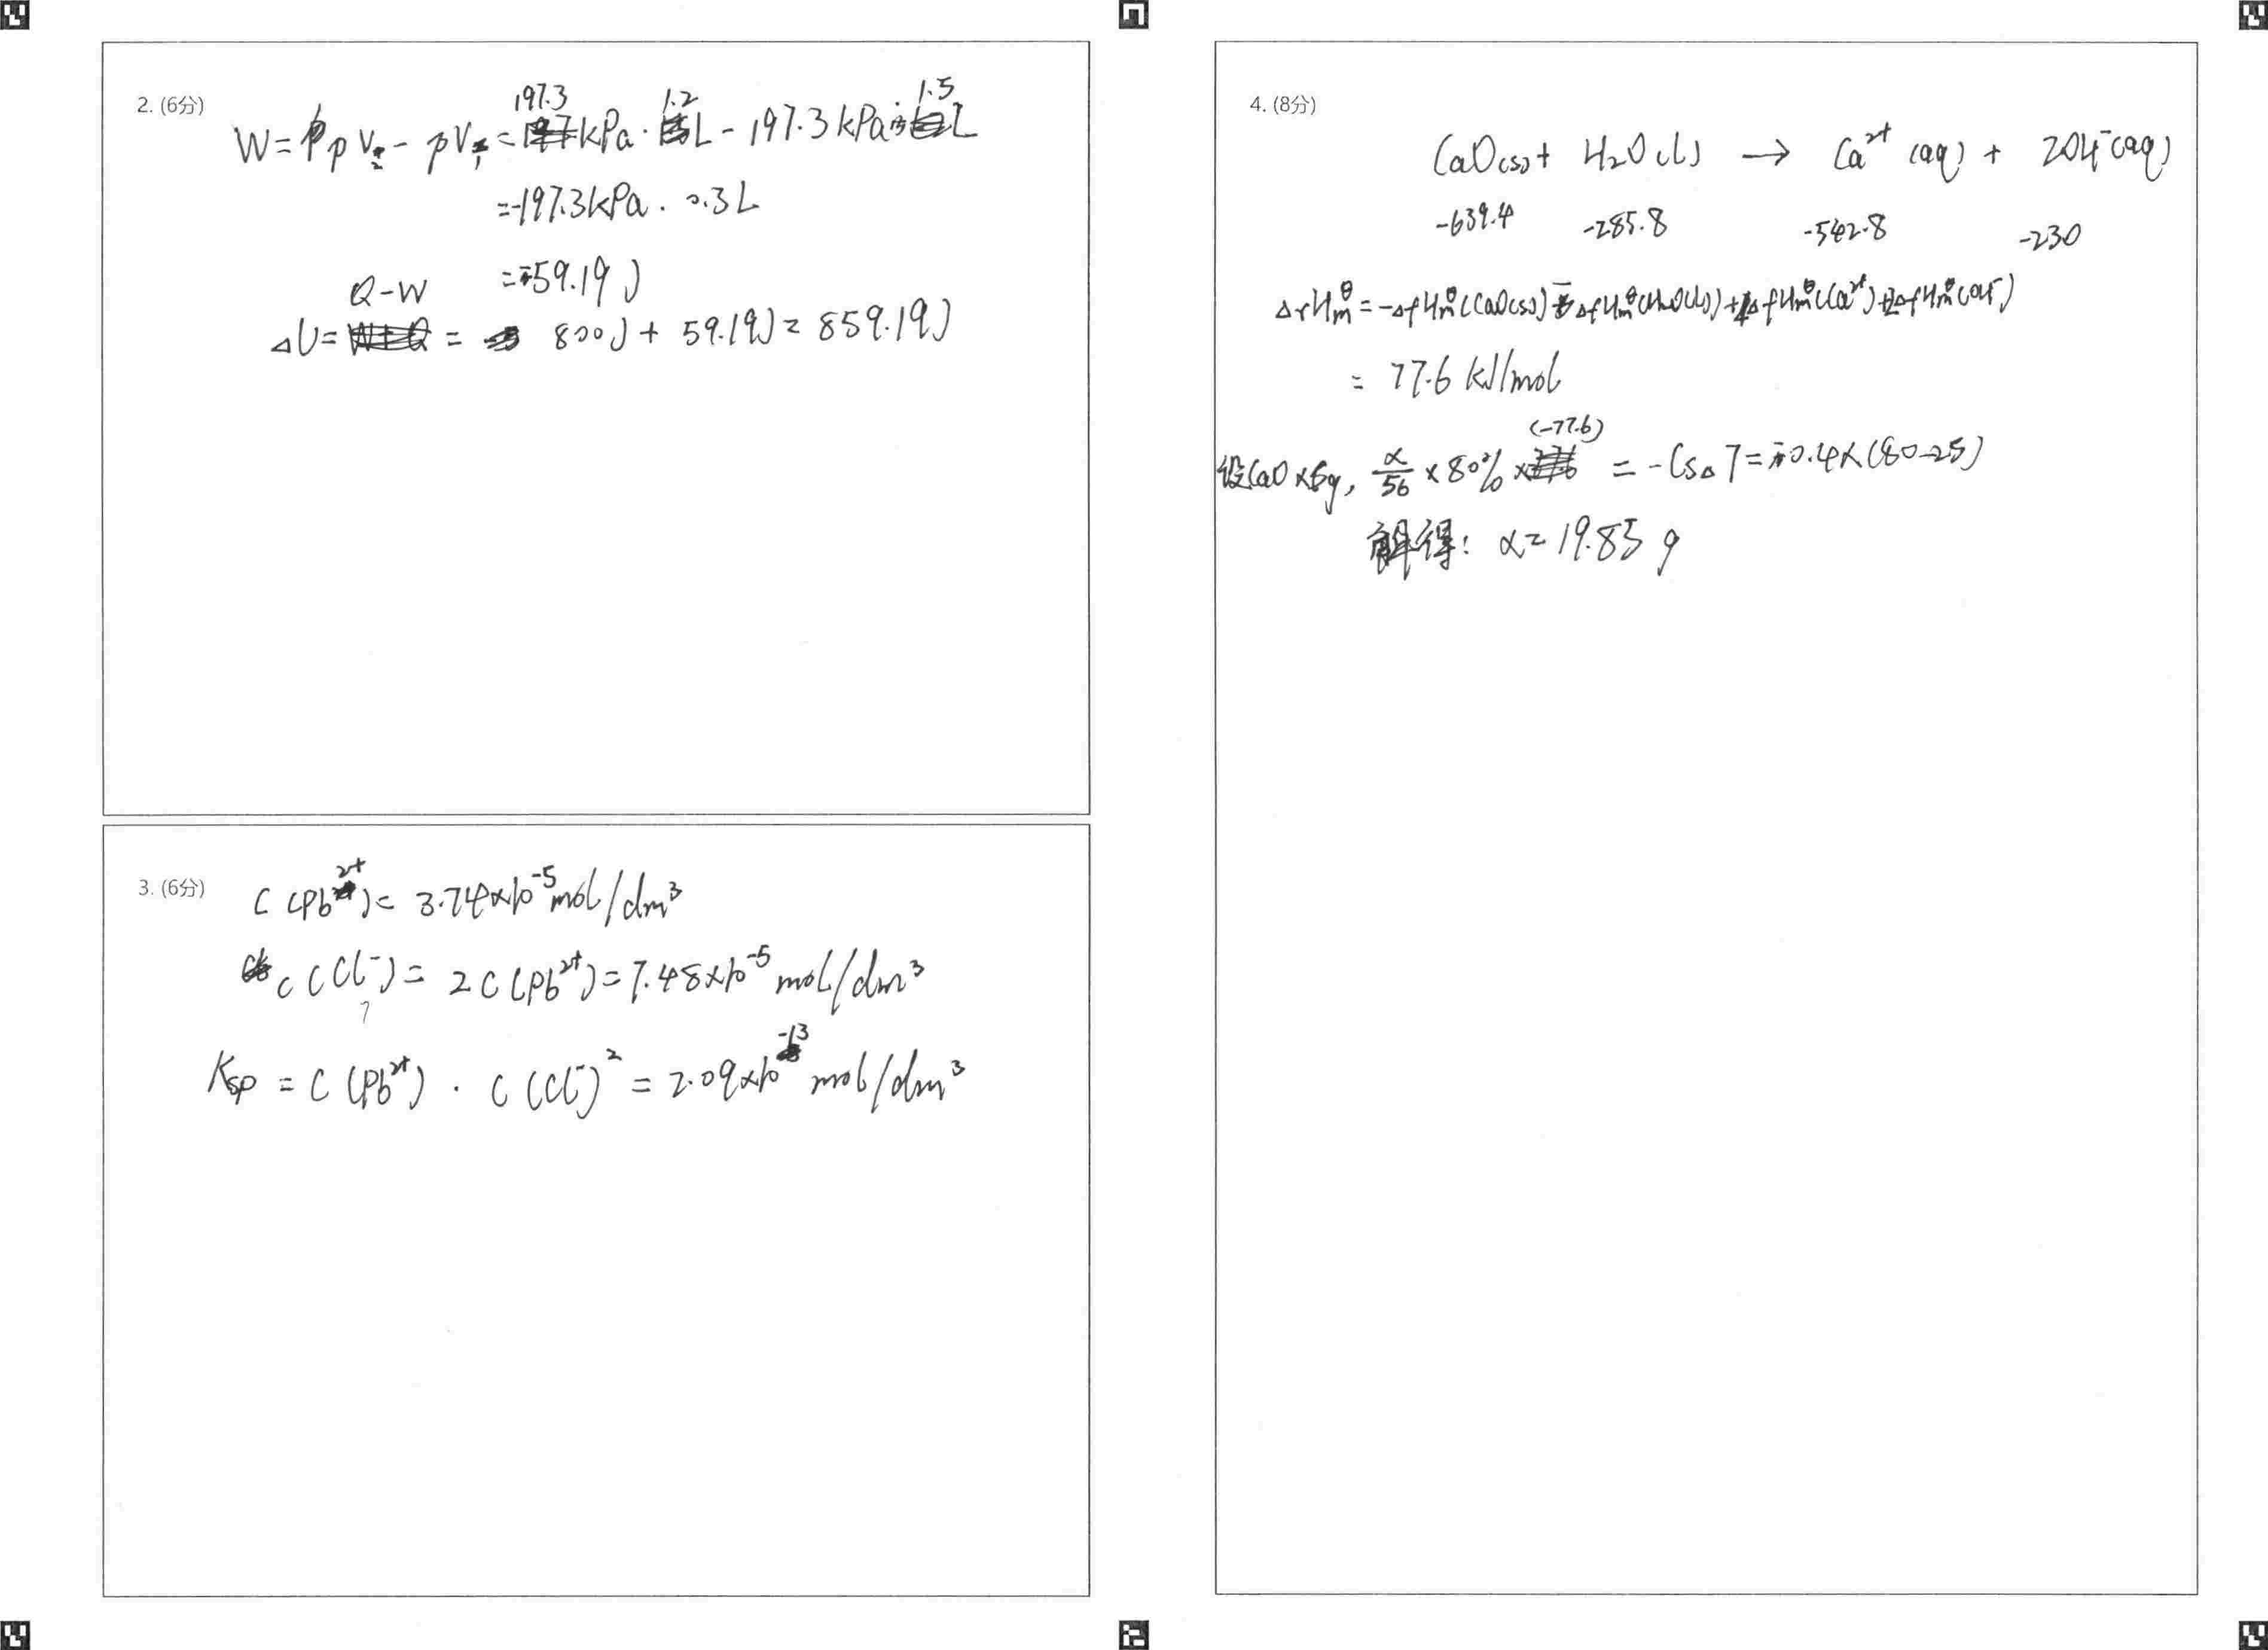 2. (6分)
W = p V₂ - pV₁ = 197.3 kPa · 1.2 L - 197.3 kPa · 1.5 L
= -197.3 kPa · 0.3 L
= -59.19 J
ΔU = Q-W = 800J + 59.19J = 859.19J
3. (6分)
C (Pb²⁺) = 3.74×10⁻⁵ mol/dm³
C (Cl⁻) = 2C (Pb²⁺) = 7.48×10⁻⁵ mol/dm³
Ksp = C (Pb²⁺) · C (Cl⁻)² = 2.09×10⁻¹³ mol/dm³
4. (8分)
CaO(s) + H₂O(l) → Ca²⁺ (aq) + 2OH⁻(aq)
-639.4 -285.8 -542.8 -230
ΔrHm^θ = -ΔfHm^θ(CaO(s)) - ΔfHm^θ(H₂O(l)) + ΔfHm^θ(Ca²⁺) + 2ΔfHm^θ(OH⁻)
= 77.6 kJ/mol
设CaO x g, x/56 × 80% × (-77.6) = -CsΔT = -0.4×(80-25)
解得: x = 19.85 g